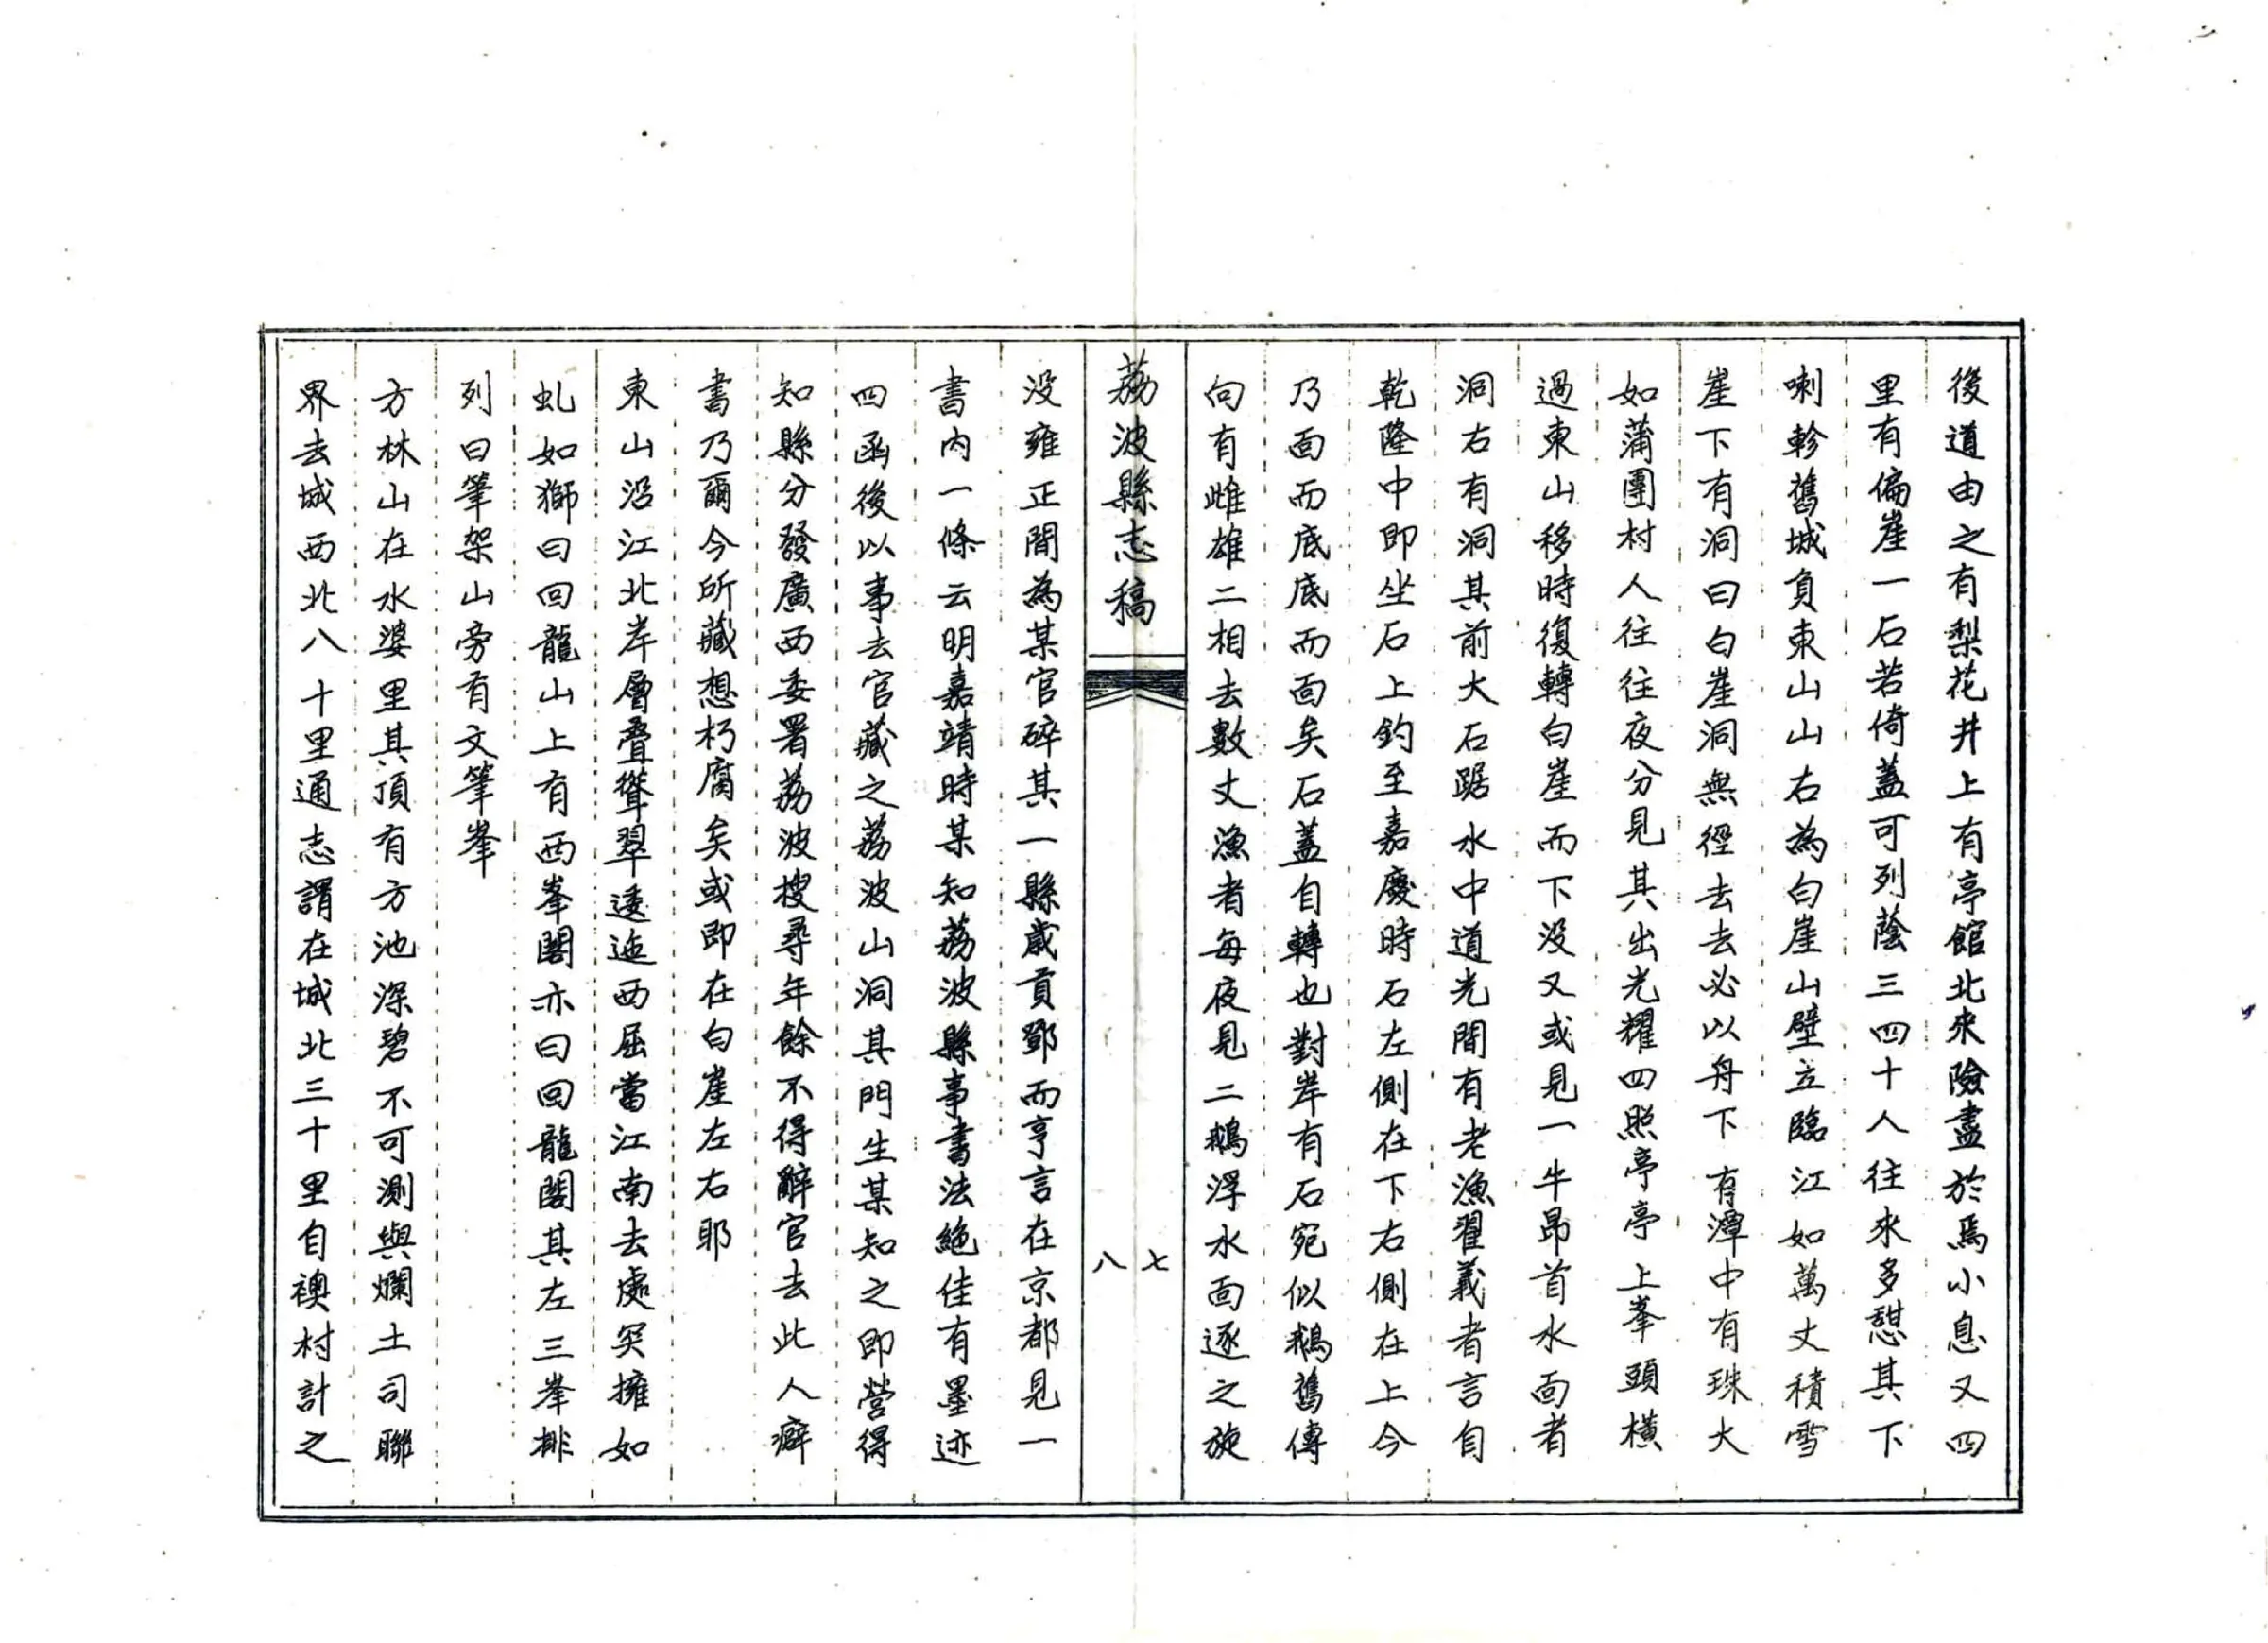 後道由之有梨花井上有亭館北來險盡於焉小息又四
里有偏崖一石若倚蓋可列蔭三四十人往來多憇其下
喇軫舊城負東山山右為白崖山壁立臨江如萬丈積雪
崖下有洞曰白崖洞無徑去去必以舟下有潭中有珠大
如蒲團村人往往夜分見其出光耀四照亭亭上峯頭橫
過東山移時復轉白崖而下没又或見一牛昂首水面者
洞右有洞其前大石踞水中道光間有老漁翟義者言自
乾隆中即坐石上釣至嘉慶時石左側在下右側在上今
乃面而底底而面矣石蓋自轉也對岸有石宛似鵝舊傳
向有雌雄二相去數丈漁者每夜見二鵝浮水面逐之旋
荔波縣志稿
七
八
没雍正間為某官碎其一縣歲貢鄧而亨言在京都見一
書内一條云明嘉靖時某知荔波縣事書法絶佳有墨迹
四函後以事去官藏之荔波山洞其門生某知之即營得
知縣分發廣西委署荔波搜尋年餘不得辭官去此人癖
書乃爾今所藏想朽腐矣或即在白崖左右耶
東山沿江北岸層疊聳翠逶迤西屈當江南去處突擁如
虬如獅曰回龍山上有西峯閣亦曰回龍閣其左三峯排
列曰筆架山旁有文筆峯
方林山在水婆里其頂有方池深碧不可測與爛土司聯
界去城西北八十里通志謂在城北三十里自襖村計之